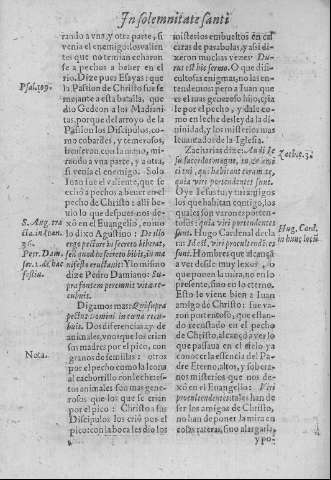 In solemnitate sancti
rando a vna, y otra parte, si
venia el enemigo: los valien
tes que no temian echarse
se a pechos a beber en el
rio. Dize pues Esayas: que
la Passion de Christo fue se
mejante a esta batalla, que
dio Gedeon a los Madiani
tas, porque del arroyo de la
Passion los Discipulos, co
mo cobardes, y temerosos,
beuieron con la mano, mi-
rando a vna parte, y a otra,
si venia el enemigo. Solo
Iuan fue el valiente, que se
echó a pechos a beuer en el
pecho de Christo: alli be-
uio lo que despues nos de-
xó en el Euangelio, como
lo dixo Agustino: De illo
ergo pectore in secreto biberat,
sed quod in secreto bibit, in ma
nifesto eructauit: Y lo mismo
dize Pedro Damiano: Su
pra fontem perennis vitæ re-
cubuit.
Digamos mas: Quia supra
pectus Domini in cœna recu
buit. Dos diferencias ay de
animales, vnos que los crian
sus madres por el pico, con
granos de semillas: otros
por el pecho como la leona
al cachorrillo con leche: es-
tos animales son mas gene-
rosos que los que se crian
por el pico: Christo a sus
Discipulos los crió por el
pico: con la boca les dio los
misterios embueltos en ca
çitas de parabolas, y assi di-
xeron muchas vezes: Du-
rus est hic sermo. O que difi
cultosas enigmas, no las en-
tendemos: pero a Iuan que
era mas generoso hijo, cria
le por el pecho, y dale co-
mo en leche del ey da la di-
uinidad, y los misterios mas
leuantados de la Iglesia.
Zacharias dize: Audi Ie
su sacerdos magne, tu, & ami
ci tui, qui habitant coram te,
quia viri portendentes sunt.
Oye Iesus tu, y tus amigos
los que habitan contigo, los
quales son varones porten-
tosos: quia viri portendentes
sunt. Hugo Cardenal decla
ra: Id est, viri procul videntes
sunt. Hombres que alcançã
a ver desde muy lexos, o
que ponen la mira, no en lo
presente, sino en lo eterno.
Esto le viene bien a Iuan
amigo de Christo: fue va-
ron portentoso, que estan-
do recostado en el pecho
de Christo, alcançó a ver lo
que passaua en el cielo, y a
conocer la essencia del Pa
dre Eterno, altos, y sobera-
nos misterios que nos de-
xó en el Euangelio: Viri
procul videntes: tales han de
ser los amigos de Christo,
no han de poner la mira en
cosas rateras, sino alargarla,
y po-
Psal. 109.
S. Aug. tra
cta. in Ioan.
36.
Petr. Dam.
Nota.
Zach. 3.
Hug. Card.
in hunc locũ